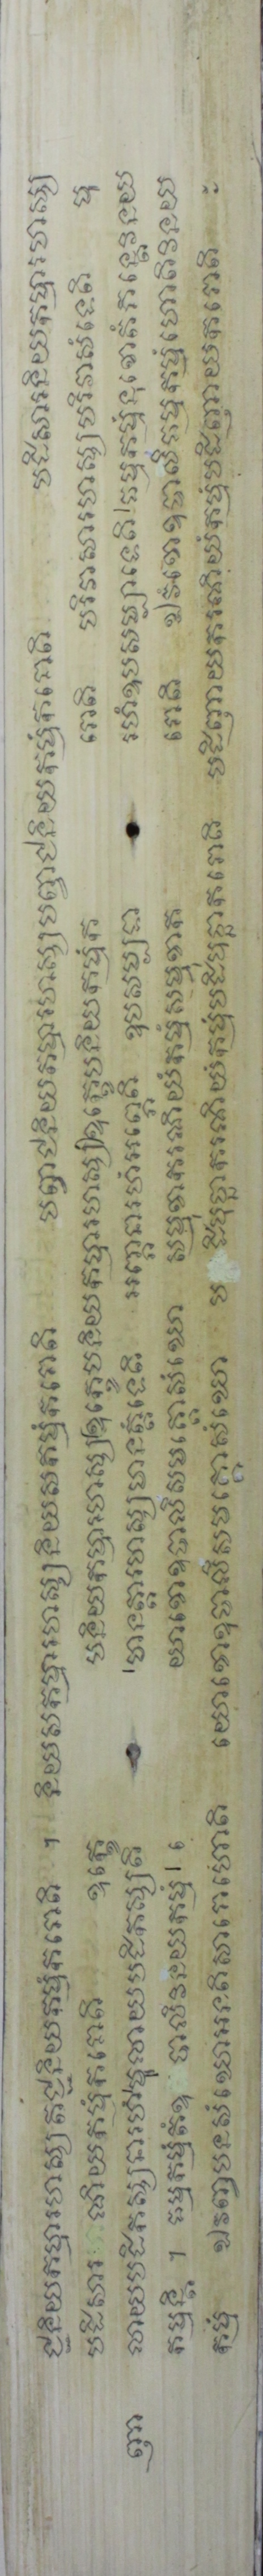 ជ្ជនិយកម្មារហស្ស តជ្ជនិយកម្មំ ករោតិ ។ និយសកម្មារហស្ស និយសកម្មំ ករោតិ បញ្វាជនិយកម្មារហស្ស បញ្វាជនិយកម្មំ ករោតិ បដិសារនិយកម្មារហាស្ស
បដិសារ ណិយកម្មំ ករោតិ ឧក្ខេ បនិយកម្មារហាស្ស ឧក្ខេបនិយកម្មារហស្ស ឧក្ខេបនិយកម្មំ ក រោតិ បរិវាសារហស្ស បរិវាសំ ទេតិ មុ
ញា លាយបដិកស្សនារហំ មូលាយបដិកស្សតិ មានត្តារហស្ស មានត្តំ ទេតិ អញ្ភានារហំ អញ្ភេតិ ឧបសម្បទា រហំ ឧបសម្បាទេតិ ធម្មកម្មំ នុខោ តំ ភន្តេ វិនយ
កម្មន្តិ ។ ធម្មកម្មំ តំ ឧ បាលិ វិនយកម្មំ យោ ខោ ឧបាលិ សមគ្គោ សំឃោ សម្មុខាករណិយំ កម្មំ សម្មុខា ក រោតិ ឯវំ ខោ ឧបាលិ ធម្មកម្មំ ហោតិ វិនយ
កម្មំ ឯវញ្ច បន សំឃោ អនតិសារោ ហោតិ យោ ខោ ឧបាលិ សមគ្គោ សំឃោ ប ដិបុច្ឆាករណិយំ កម្មំ បដិបុច្ឆា ករោតិ បដិញាយករណិយំ កម្មំ បដិញាយ ករោតិ